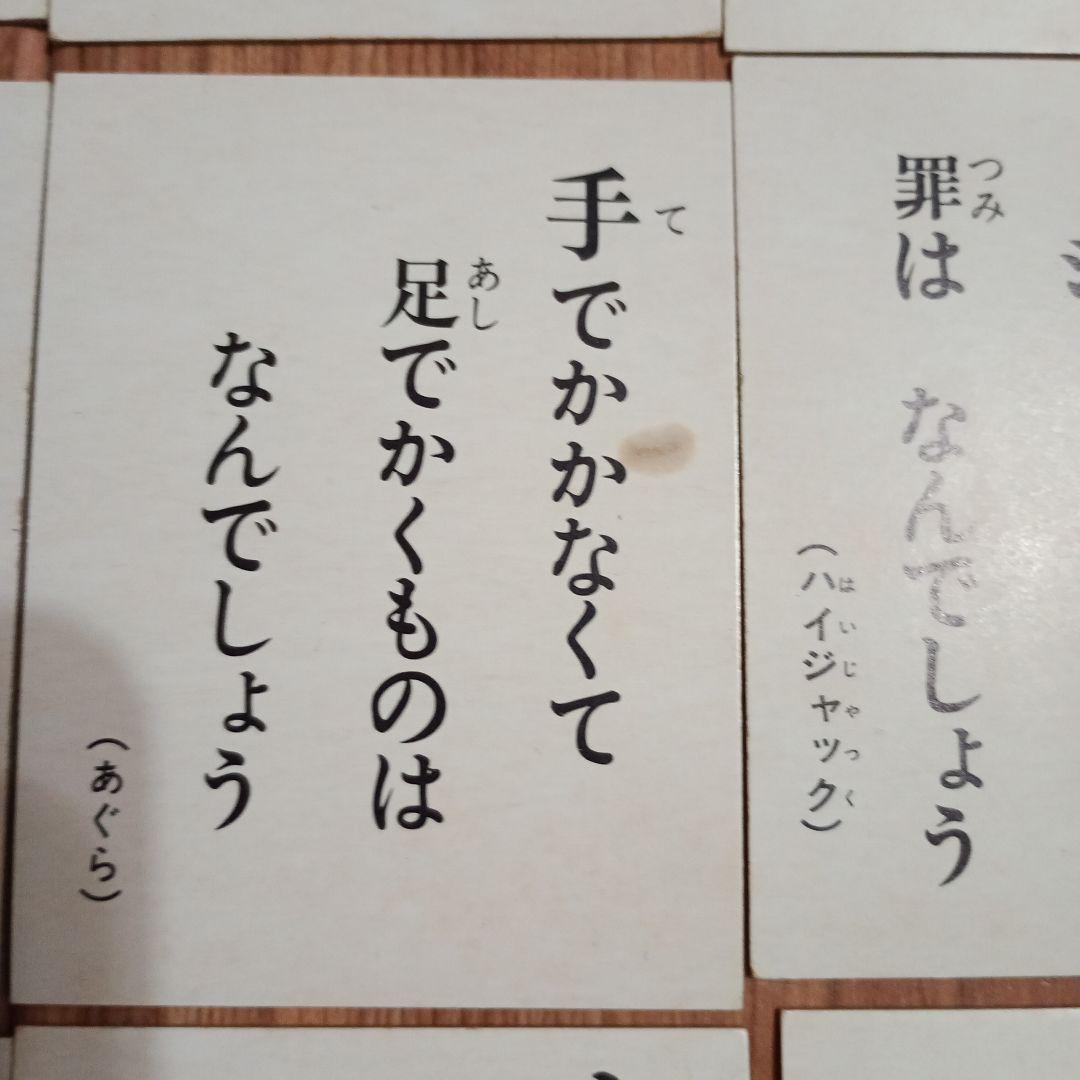 手でかかなくて
て
足でかくものは
あし
なんでしょう
（あぐら）
罪は なんでしょう
つみ
（ハイジャック）
はいじゃっく